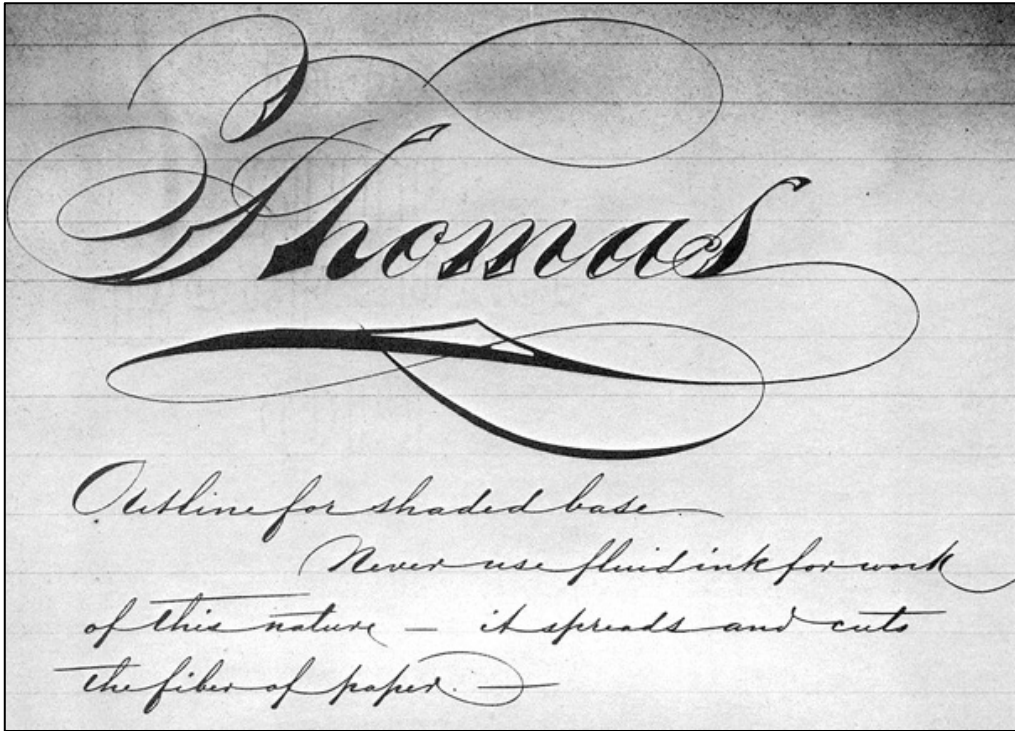 Thomas
Outline for shaded base
Never use fluid ink for work
of this nature — it spreads and cuts
the fiber of paper. —